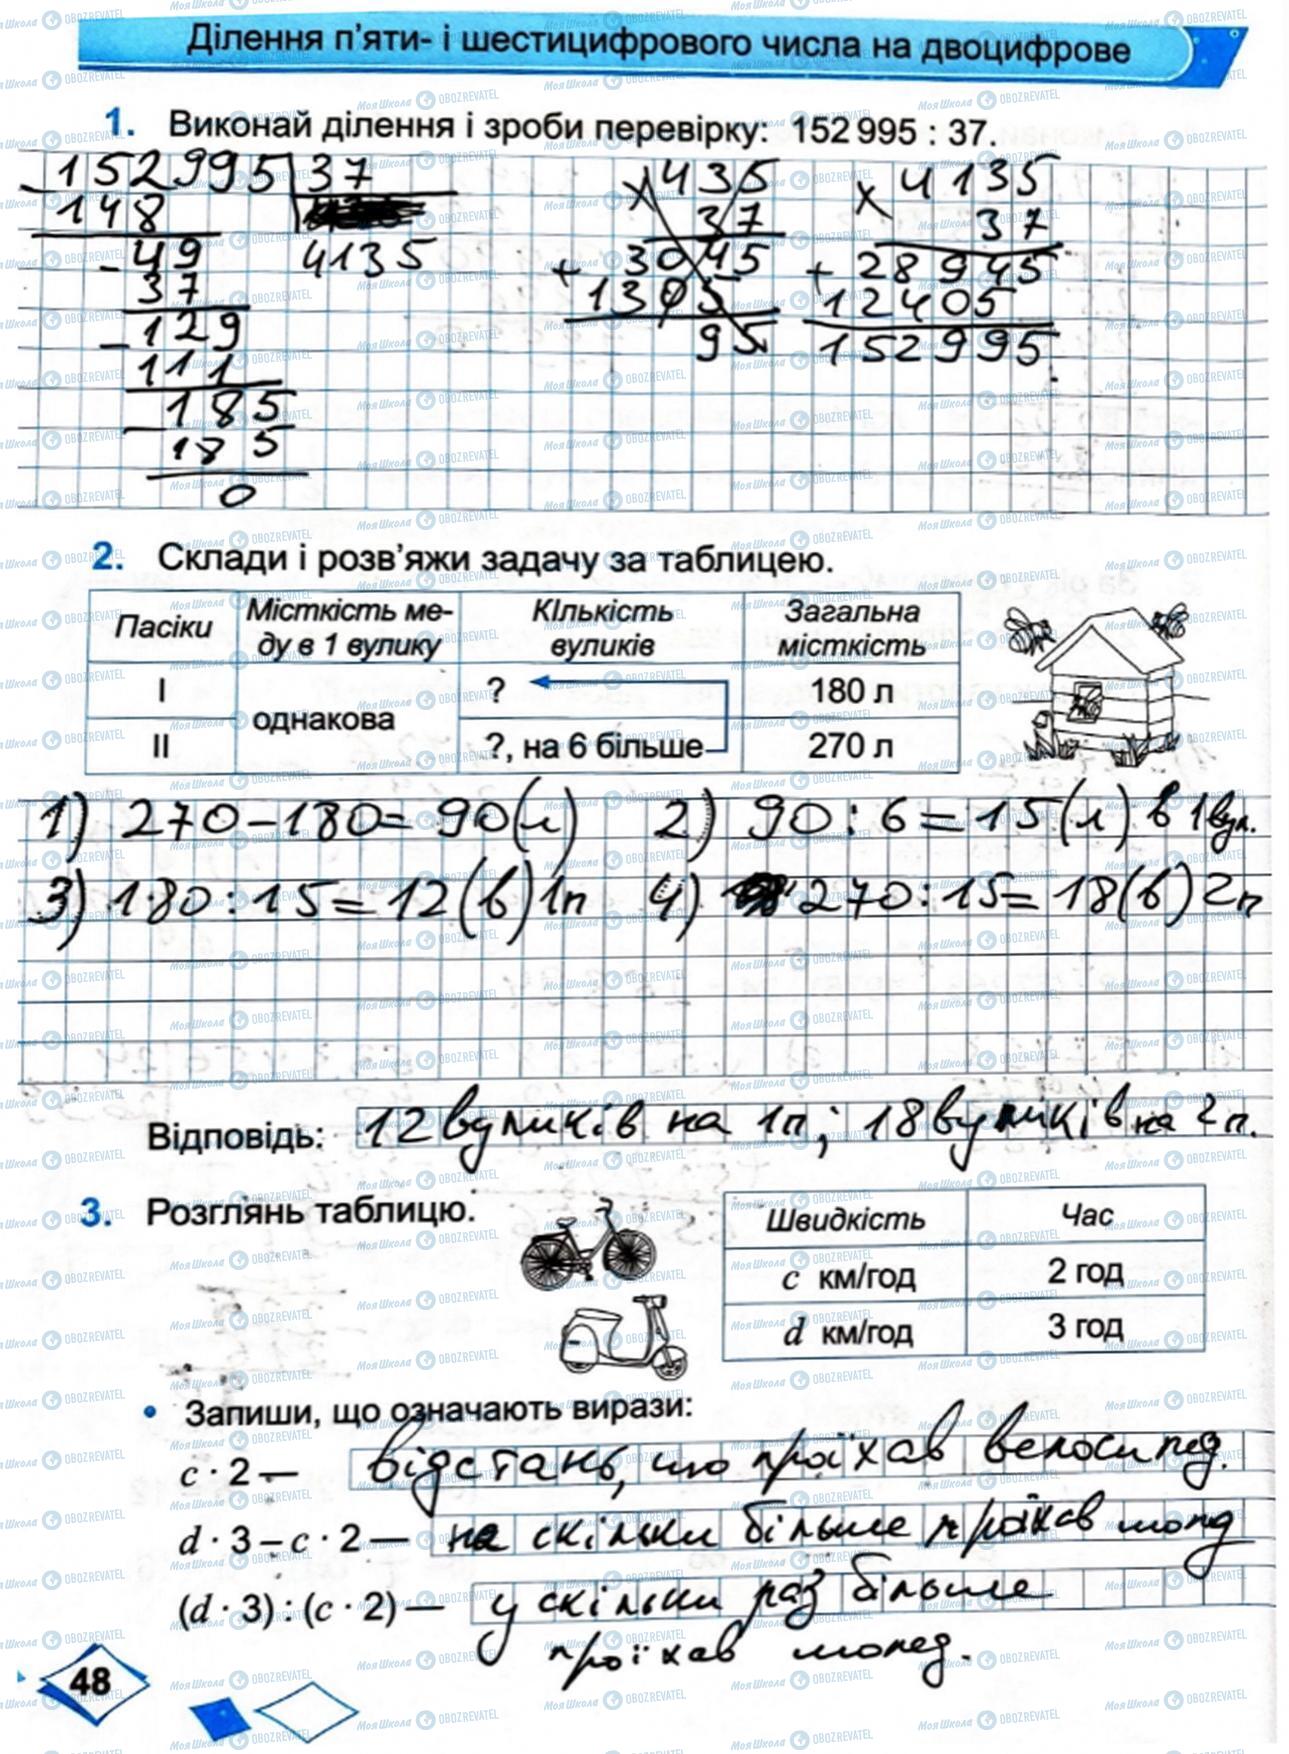 Ділення п'яти- і шестицифрового числа на двоцифрове
1. Виконай ділення і зроби перевірку: 152 995 : 37.
152995 37
148
4135
- 49
37
- 129
111
- 185
185
0
× 435
37
+ 3045
1305
95
× 4135
37
+ 28945
12405
152995
2. Склади і розв'яжи задачу за таблицею.
Пасіки Місткість ме-ду в 1 вулику КІлькість вуликів Загальна місткість
І однакова ? 180 л
ІІ ?, на 6 більше 270 л
1) 270-180=90(л) 2) 90:6=15(л) в 1 вул.
3) 180:15=12(в) 1п 4) 270:15=18(в) 2п
Відповідь: 12 вуликів на 1п; 18 вуликів на 2п.
3. Розглянь таблицю.
Швидкість Час
c км/год 2 год
d км/год 3 год
• Запиши, що означають вирази:
c · 2 — відстань, що проїхав велосипед.
d · 3 – c · 2 — на скільки більше проїхав мопед
(d · 3) : (c · 2) — у скільки раз більше
проїхав мопед.
48
МояШкола OBOZREVATEL